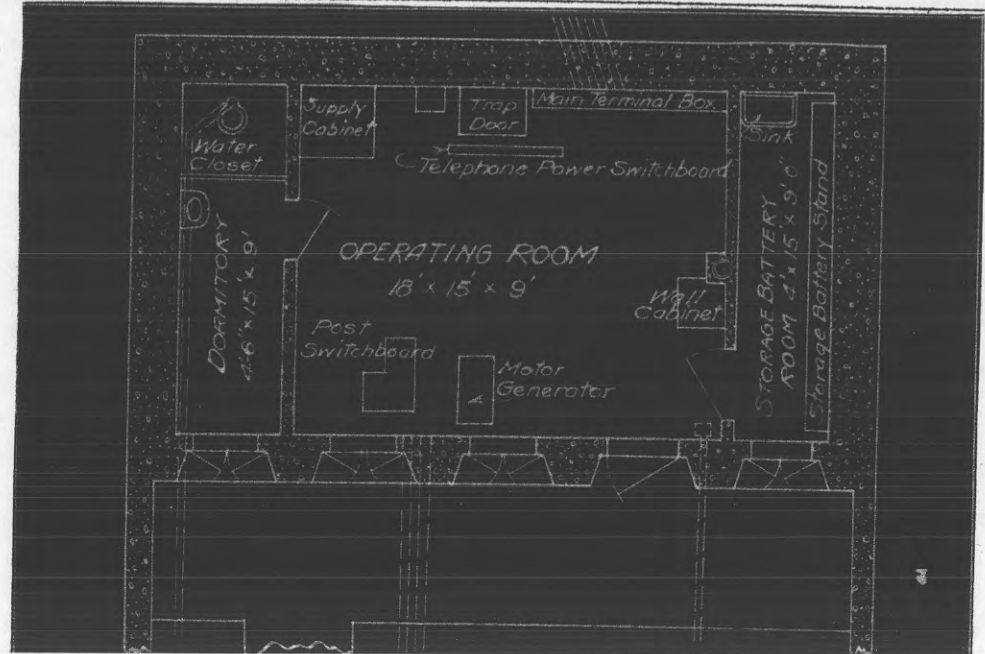 Water
Closet
Supply
Cabinet
Trap
Door
Main Terminal Box
Sink
Telephone Power Switchboard
OPERATING ROOM
18' x 15' x 9'
DORMITORY
4'-6" x 15' x 9'
Wall
Cabinet
STORAGE BATTERY
ROOM 4' x 15' x 9'0"
Storage Battery Stand
Post
Switchboard
Motor
Generator